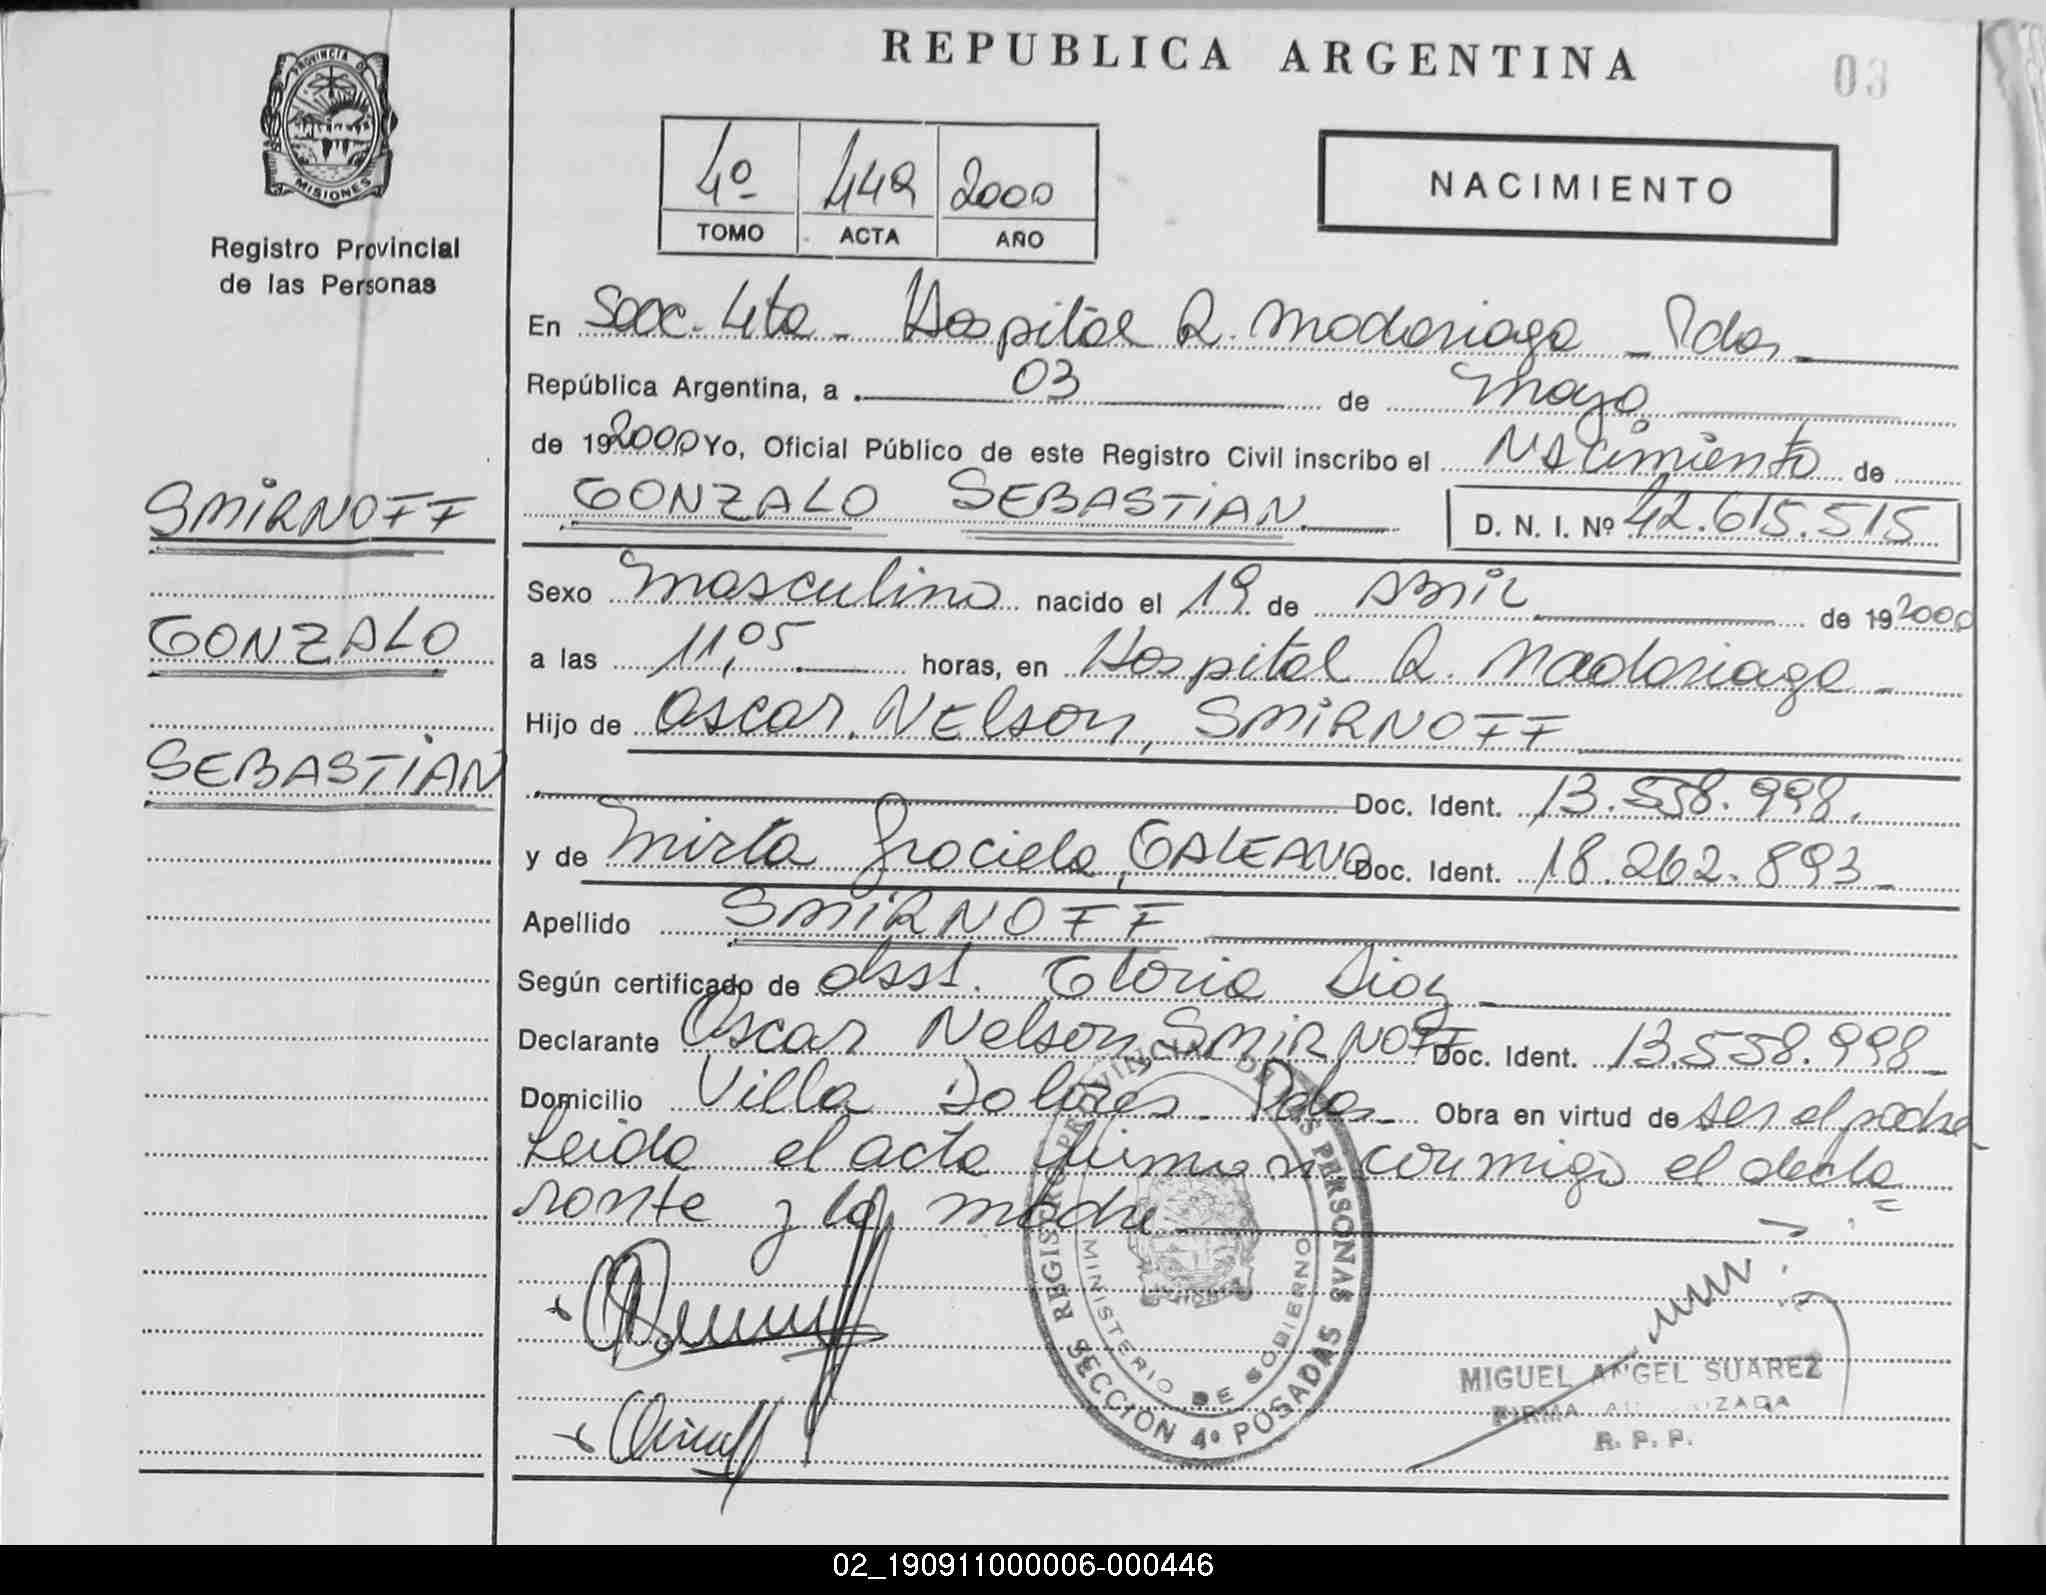 REPUBLICA ARGENTINA
03
PROVINCIA DE
MISIONES
Registro Provincial
de las Personas
4º 449 2000
TOMO ACTA AÑO
NACIMIENTO
En Secc. 4ta - Hospital R. Madariaga - Pdas
República Argentina, a 03 de Mayo
de 192000 Yo, Oficial Público de este Registro Civil inscribo el Nacimiento de
GONZALO SEBASTIAN D. N. I. Nº 42.615.515
SMIRNOFF
GONZALO
SEBASTIAN
Sexo Masculino nacido el 19 de Abril de 192000
a las 11,05 horas, en Hospital R. Madariaga -
Hijo de Oscar Nelson, SMIRNOFF
Doc. Ident. 13.558.998.
y de Mirta Graciela, GALEANO Doc. Ident. 18.262.893 -
Apellido SMIRNOFF
Según certificado de Gloria Diaz
Declarante Oscar Nelson SMIRNOFF Doc. Ident. 13.558.998 -
Domicilio Villa Dolores - Pdas - Obra en virtud de ser el padre
Leida el acta firman conmigo el decla
rante y la madre
REGISTRO PROVINCIAL DE LAS PERSONAS
MINISTERIO DE GOBIERNO
SECCIÓN 4º POSADAS
MIGUEL ANGEL SUAREZ
FIRMA
R. P. P.
02_190911000006-000446